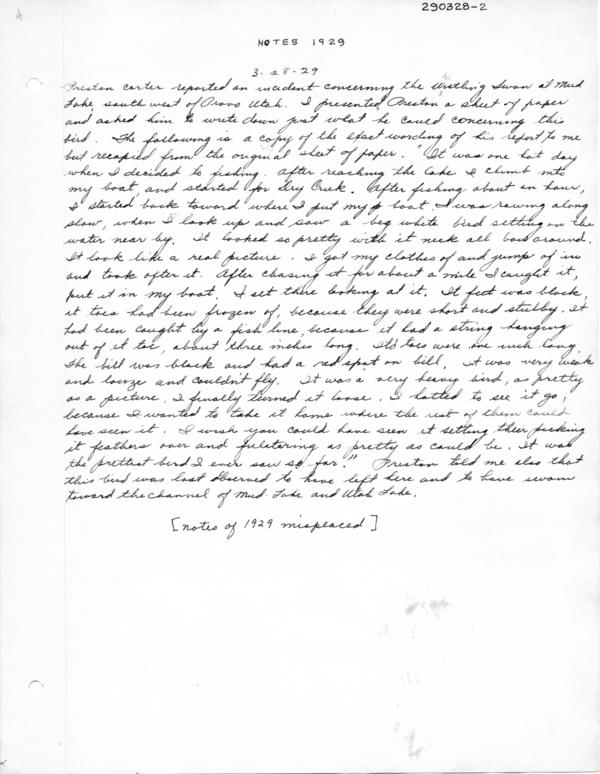 290328-2
NOTES 1929
3-28-29
Preston Carter reported an incident concerning the Wistling Swan at Mud
Lake, south west of Provo Utah. I presented Preston a sheet of paper
and asked him to write down just what he could concerning this
bird. The following is a copy of the exact wording of his report to me
but recopied from the original sheet of paper. "It was one hot day
when I decided to fishing. After reaching the lake I climb into
my boat, and started for Dry Creek. After fishing about an hour,
I started back toward where I put my boat. I was rowing along
slow, when I look up and saw a beg white bird setting on the
water near by. It looked so pretty with it neck all bow around.
It look like a real picture. I got my clothes of and jump of in
and took after it. After chasing it for about a mile I caught it,
put it in my boat. I set there looking at it. It feet was black,
it toes had been frozen of, because they were short and stubby. It
had been caught by a fish line, because it had a string hanging
out of it toe, about three inches long. It's toes were one inch long.
The bill was black and had a red spot on bill. It was very weak
and and couldn't fly. It was a very heavy bird, as pretty
as a picture. I finally turned it loose. I hatted to see it go,
because I wanted to take it home where the rest of them could
have seen it. I wish you could have seen it setting ther picking
it feathers over and as pretty as could be. It was
the prettist bird I ever saw so far." Preston told me also that
this bird was last observed to have left here and to have swam
toward the channel of Mud Lake and Utah Lake.
[notes of 1929 misplaced]